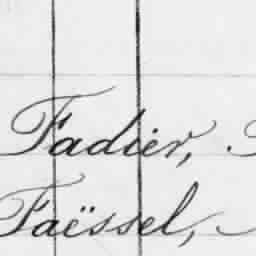 Fadier,
Faëssel,